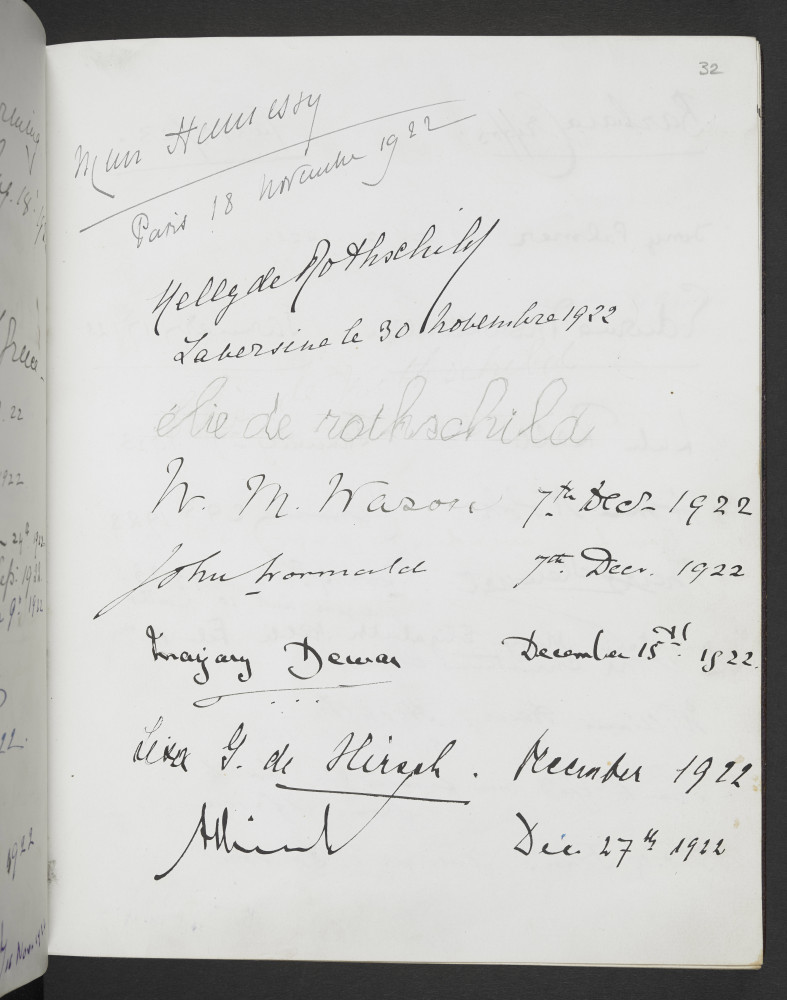 32
Hennessy
Paris 18 Novembre 1922
Nelly de Rothschild
Laversine le 30 novembre 1922
élie de rothschild
W. M. Wason 7th Decr 1922
John Wormald 7th Decr. 1922
Marjory Dewar December 15th 1922.
G. de Hirsch. December 1922
Dec 27th 1922